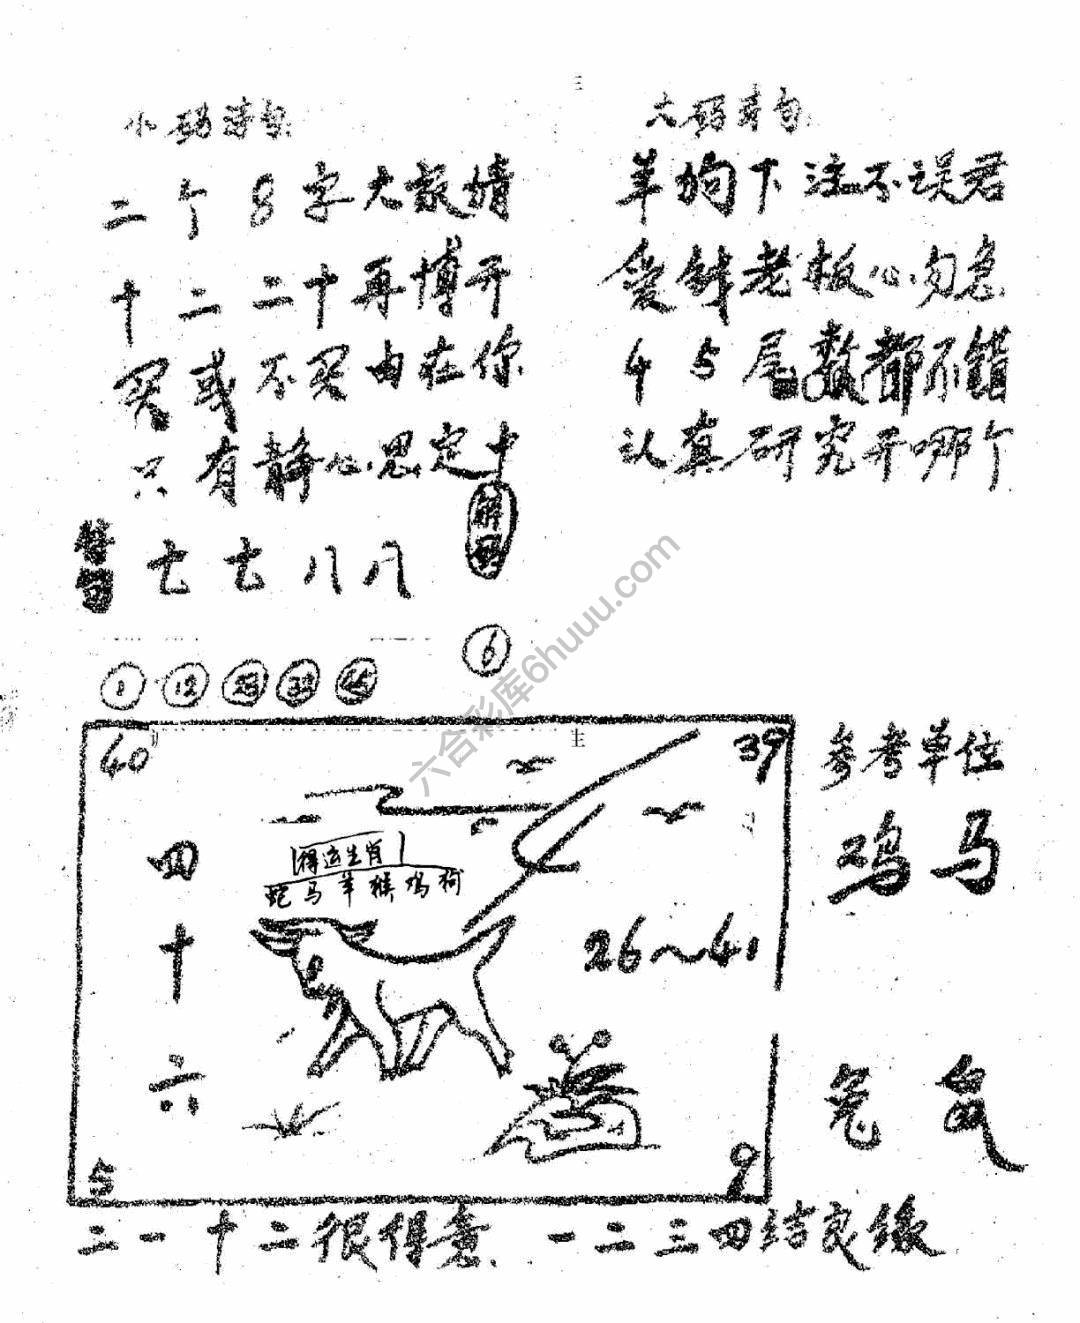 小码诗句:
二个8字大教情
十二二十再博开
买或不买由在你
只有静心思定中
解码
七七八八
6
1 12 23 33 45
大码诗句:
羊狗下注不误君
爱钱老板心勿急
45尾数都不错
认真研究开哪个
40
39
主
得运生肖
蛇马羊猴鸡狗
四十六
26~41
5
9
参考单位
鸡马
兔鼠
二一十二很得意 一二三四结良缘
六合彩库6huuu.com